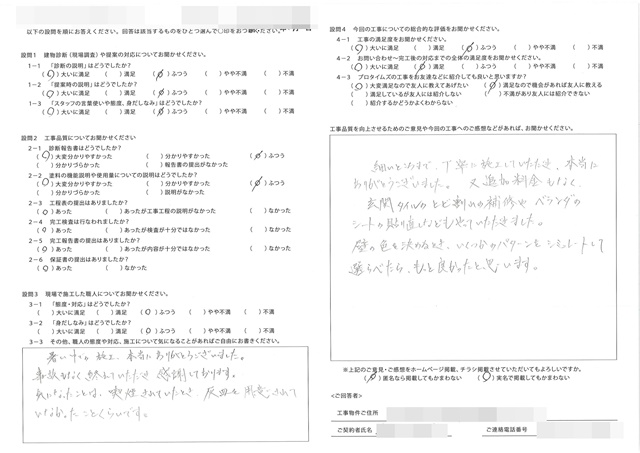 以下の設問を順にお答えください。回答は該当するものをひとつ選んで○印をお
設問1 建物診断（現場調査）や提案の対応についてお聞かせください。
1-1 「診断の説明」はどうでしたか？
（○）大いに満足 （ ）満足 （ ）ふつう （ ）やや不満 （ ）不満
1-2 「提案時の説明」はどうでしたか？
（○）大いに満足 （ ）満足 （ ）ふつう （ ）やや不満 （ ）不満
1-3 「スタッフの言葉使いや態度、身だしなみ」はどうでしたか？
（○）大いに満足 （ ）満足 （ ）ふつう （ ）やや不満 （ ）不満
設問2 工事品質についてお聞かせください
2-1 診断報告書はどうでしたか？
（○）大変分かりやすかった （ ）分かりやすかった （ ）ふつう
（ ）分かりづらかった （ ）報告書の提出がなかった
2-2 塗料の機能説明や使用量についての説明はどうでしたか？
（○）大変分かりやすかった （ ）分かりやすかった （ ）ふつう
（ ）分かりづらかった （ ）説明がなかった
2-3 工程表の提出はありましたか？
（○）あった （ ）あったが工事工程の説明がなかった （ ）なかった
2-4 完工検査は行なわれましたか？
（○）あった （ ）あったが検査が十分ではなかった （ ）なかった
2-5 完工報告書の提出はありましたか？
（○）あった （ ）あったが内容が十分ではなかった （ ）なかった
2-6 保証書の提出はありましたか？
（○）あった （ ）なかった
設問3 現場で施工した職人についてお聞かせください。
3-1 「態度・対応」はどうでしたか？
（ ）大いに満足 （ ）満足 （○）ふつう （ ）やや不満 （ ）不満
3-2 「身だしなみ」はどうでしたか？
（ ）大いに満足 （ ）満足 （○）ふつう （ ）やや不満 （ ）不満
3-3 その他、職人の態度や対応、施工について気になることがあればご自由にお書きください。
暑い中の施工、本当にありがとうございました。
事故もなく終えていただき感謝しております。
気になったことは、喫煙されていたとき、灰皿を用意されて
いなかったことくらいです。
設問4 今回の工事についての総合的な評価をお聞かせください。
4-1 工事の満足度をお聞かせください。
（○）大いに満足 （ ）満足 （ ）ふつう （ ）やや不満 （ ）不満
4-2 お問い合わせ～完工後の対応までの全体の満足度をお聞かせください。
（○）大いに満足 （ ）満足 （ ）ふつう （ ）やや不満 （ ）不満
4-3 プロタイムズの工事をお友達などに紹介しても良いと思いますか？
（ ）大変満足なので友人に教えてあげたい （○）満足なので機会があれば友人に教える
（ ）満足しているが友人には紹介しない （ ）不満があり友人には紹介できない
（ ）紹介するかどうかよくわからない
工事品質を向上させるためのご意見や今回の工事へのご感想などがあれば、お聞かせください。
細いところまで、丁寧に施工していただき、本当に
ありがとうございました。又追加料金もなく、
玄関タイルのひび割れの補修やベランダの
シートの貼り直しなどもしていただきました。
壁の色を決めるとき、いくつかのパターンをシミュレートして
選らべたら、もっと良かったと思います。
※上記のご意見・ご感想をホームページ掲載、チラシ掲載させていただいてもよろしいですか。
（ ）匿名なら掲載してもかまわない （○）実名で掲載してもかまわない
＜ご回答者＞
工事物件ご住所
ご契約者氏名 ご連絡電話番号